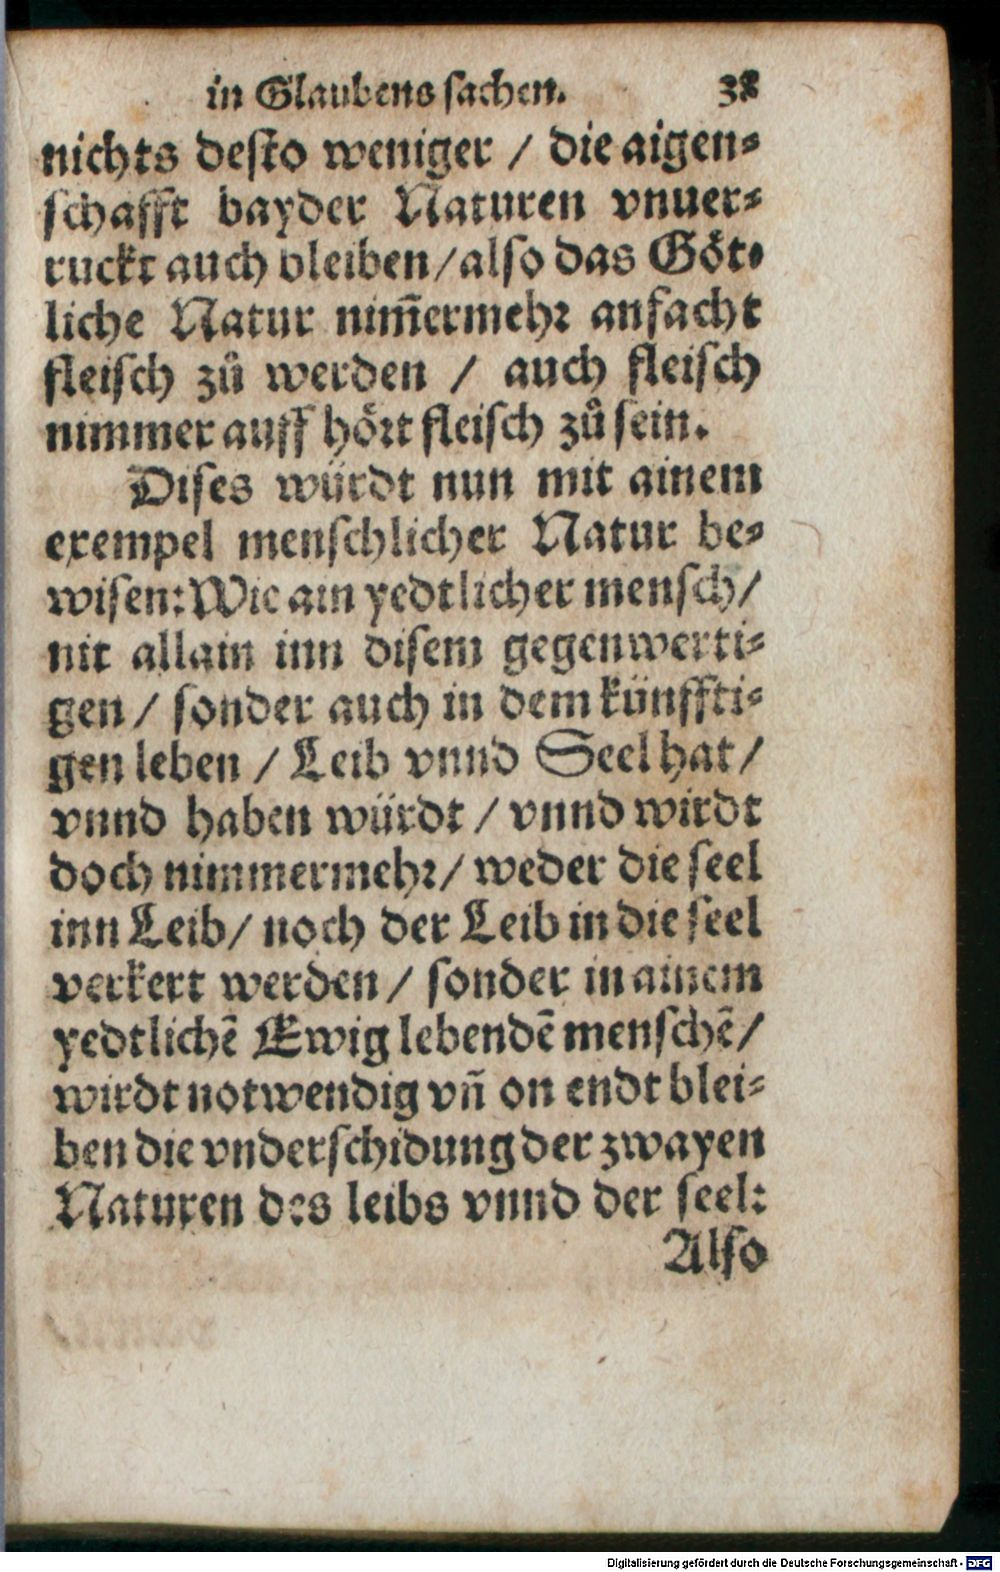 in Glaubens sachen. 38
nichts desto weniger / die aigen⸗
schafft bayder Naturen vnuer⸗
ruckt auch bleiben / also das Göt⸗
liche Natur nim̄ermehr anfacht
fleisch zů werden / auch fleisch
nimmer auff hört fleisch zů sein.
Dises würdt nun mit ainem
exempel menschlicher Natur be⸗
wisen: Wie ain yedtlicher mensch /
nit allain inn disem gegenwerti⸗
gen / sonder auch in dem künffti⸗
gen leben / Leib vnnd Seel hat /
vnnd haben würdt / vnnd wirdt
doch nimmermehr / weder die seel
inn Leib / noch der Leib in die seel
verkert werden / sonder in ainem
yedtlichē Ewig lebendē menschē /
wirdt notwendig vñ on endt blei⸗
ben die vnderschidung der zwayen
Naturen des leibs vnnd der seel:
Also
Digitalisierung gefördert durch die Deutsche Forschungsgemeinschaft - DFG